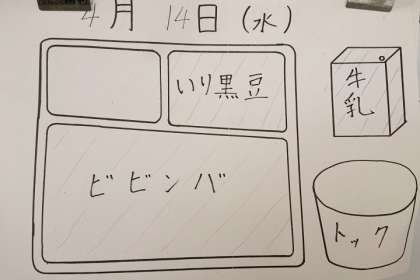 4月 14日 (水)
いり黒豆
牛乳
ビビンバ
トック